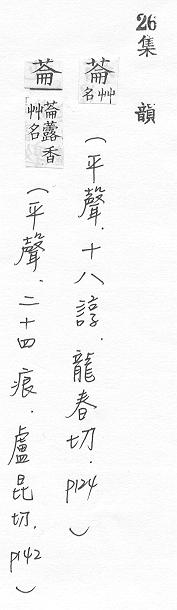 26集 韻
菕艸名(平聲.十八諄.龍春切.p124)
菕菕露香艸名(平聲.二十四痕.盧昆切.p142)